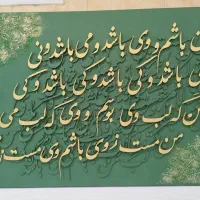 باشم و وی باشد و می باشد و نی
کی باشد و کی باشد و کی باشد و کی
من گه لب وی بوسم و وی گه لب می
من مست ز وی باشم و وی مست ز